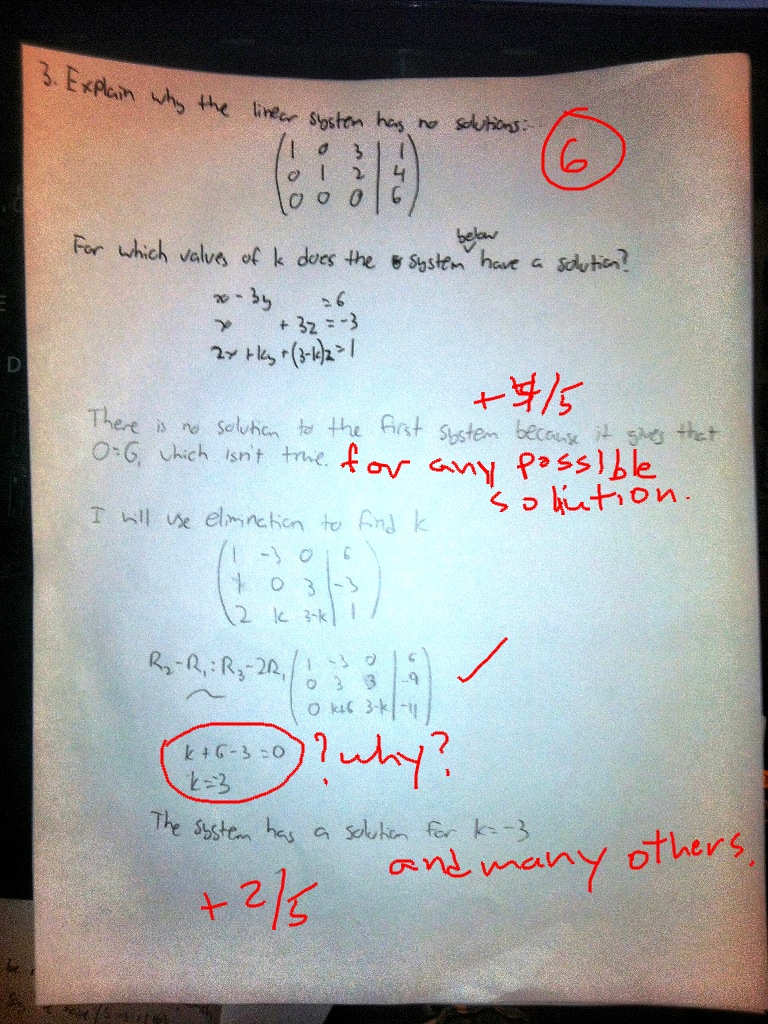 3. Explain why the linear system has no solutions:
6
1 0 3 | 1
0 1 2 | 4
0 0 0 | 6
For which values of k does the system below have a solution?
x - 3y = 6
x + 3z = -3
2x + ky + (3-k)z = 1
+ 4/5
There is no solution to the first system because it gives that
0=6, which isn't true. for any possible
solution.
I will use elimination to find k
1 -3 0 | 6
1 0 3 | -3
2 k 3-k | 1
R2-R1: R3-2R1
1 -3 0 | 6
0 3 3 | -9
0 k+6 3-k | -11
k+6-3=0 ? why?
k=-3
The system has a solution for k=-3
and many others.
+ 2/5